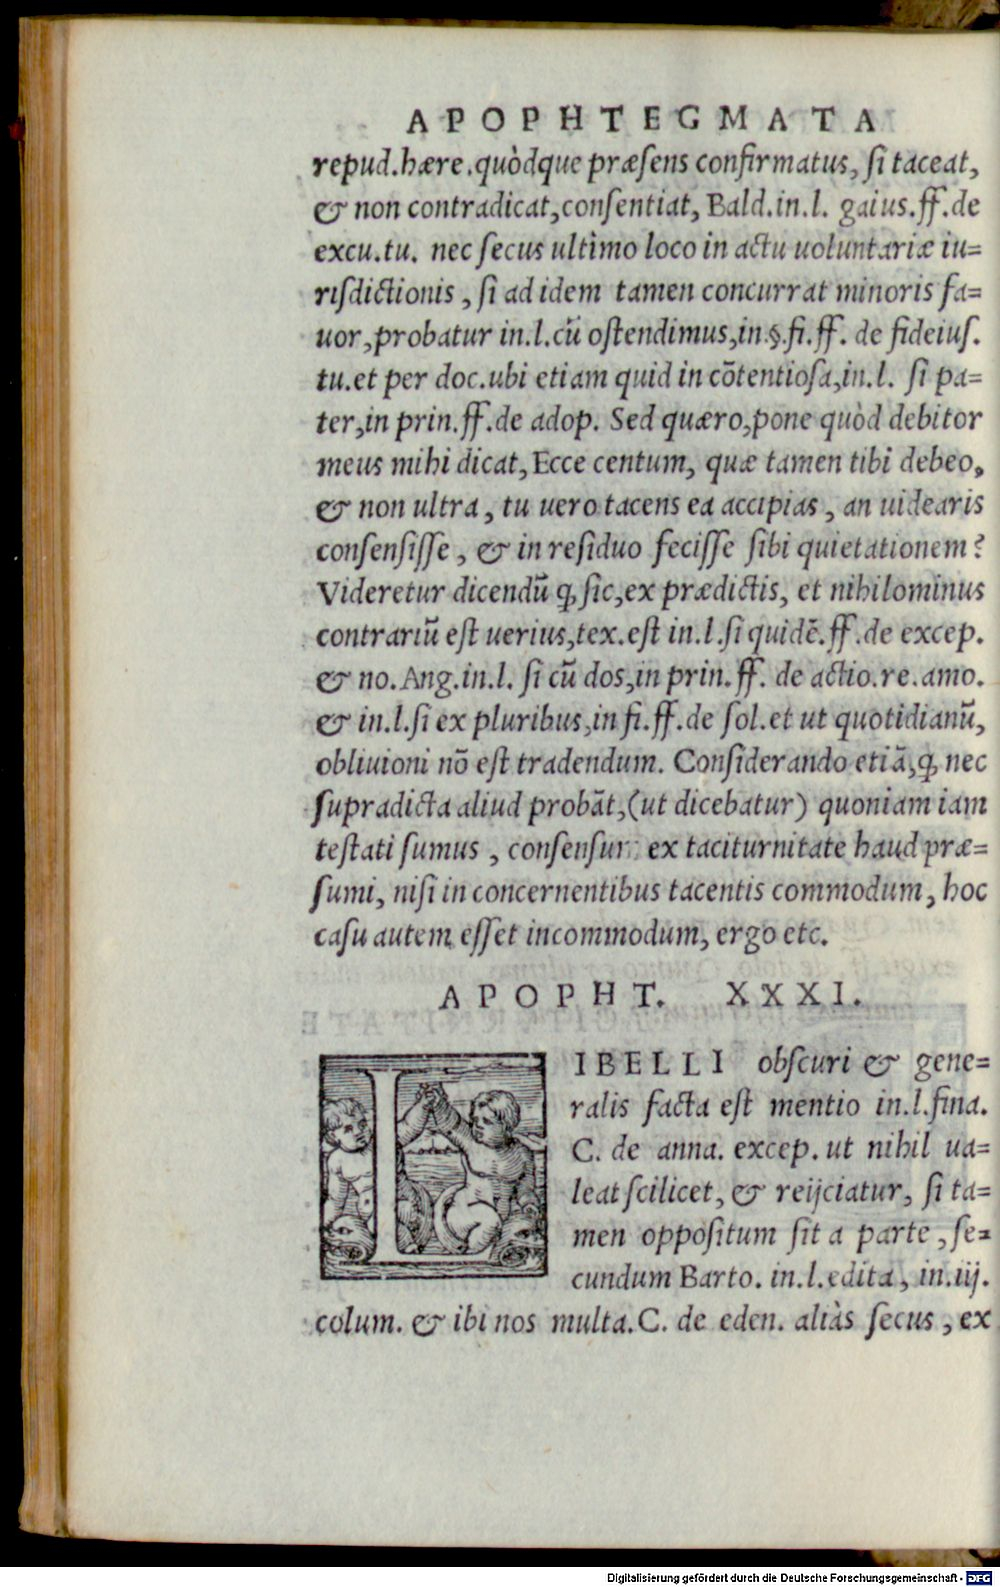 APOPHTEGMATA
repud.hære.quòdque præſens confirmatus, ſi taceat,
& non contradicat,conſentiat, Bald.in.l. gaius.ff.de
excu.tu. nec ſecus ultimo loco in actu uoluntariæ iu=
riſdictionis, ſi ad idem tamen concurrat minoris fa=
uor,probatur in.l.cũ oſtendimus,in.§.fi.ff. de fideiuſ.
tu.et per doc.ubi etiam quid in cõtentioſa,in.l. ſi pa=
ter,in prin.ff.de adop. Sed quæro,pone quòd debitor
meus mihi dicat, Ecce centum, quæ tamen tibi debeo,
& non ultra, tu uero tacens ea accipias, an uidearis
conſenſiſſe, & in reſiduo feciſſe ſibi quietationem?
Videretur dicendũ ꝙ ſic,ex prædictis, et nihilominus
contrariũ eſt uerius,tex.eſt in.l.ſi quidẽ.ff.de excep.
& no.Ang.in.l. ſi cũ dos,in prin.ff. de actio.re.amo.
& in.l.ſi ex pluribus,in fi.ff.de ſol.et ut quotidianũ,
obliuioni nõ eſt tradendum. Conſiderando etiã,ꝙ nec
ſupradicta aliud probãt,(ut dicebatur) quoniam iam
teſtati ſumus, conſenſum ex taciturnitate haud præ=
ſumi, niſi in concernentibus tacentis commodum, hoc
caſu autem eſſet incommodum, ergo etc.
APOPHT. XXXI.
LIBELLI obſcuri & gene=
ralis facta eſt mentio in.l.fina.
C. de anna. excep. ut nihil ua=
leat ſcilicet, & reijciatur, ſi ta=
men oppoſitum ſit a parte, ſe=
cundum Barto. in.l.edita, in.iij.
colum. & ibi nos multa.C. de eden. aliàs ſecus, ex
Digitalisierung gefördert durch die Deutsche Forschungsgemeinschaft - DFG